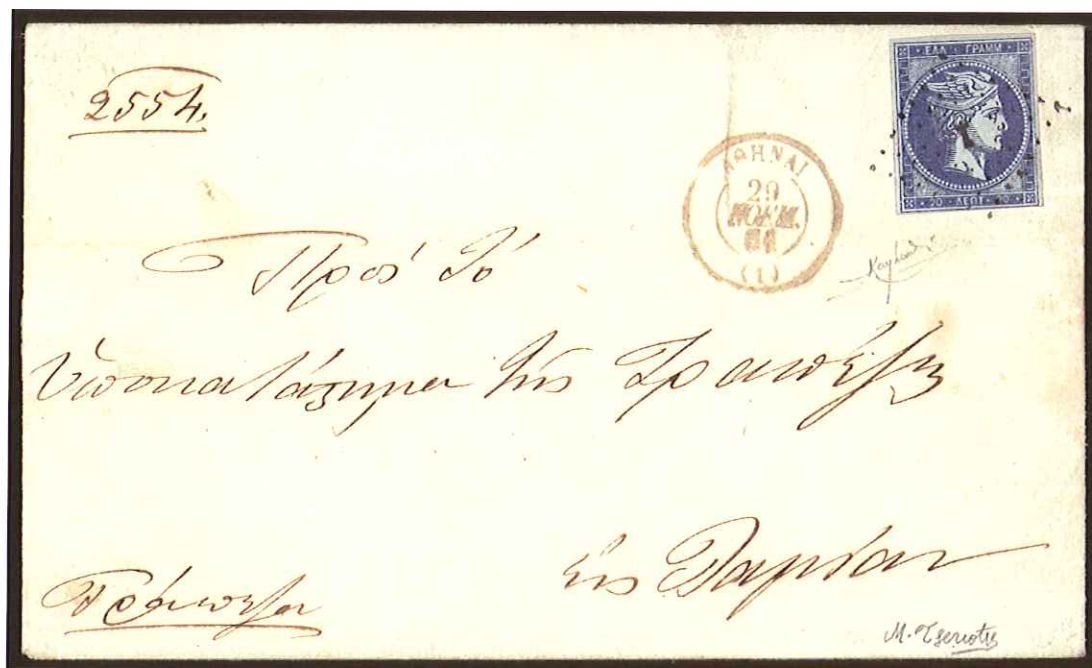 2554.
ΕΛΛ · ΓΡΑΜΜ
20 · ΛΕΠΤ · 20
ΑΘΗΝΑΙ
29
ΝΟΕΜ.
(1)
Πρὸς Τὸ
Ὑποκατάστημα τῆς Τραπέζης
εἰς Λαμίαν
Τράπεζα